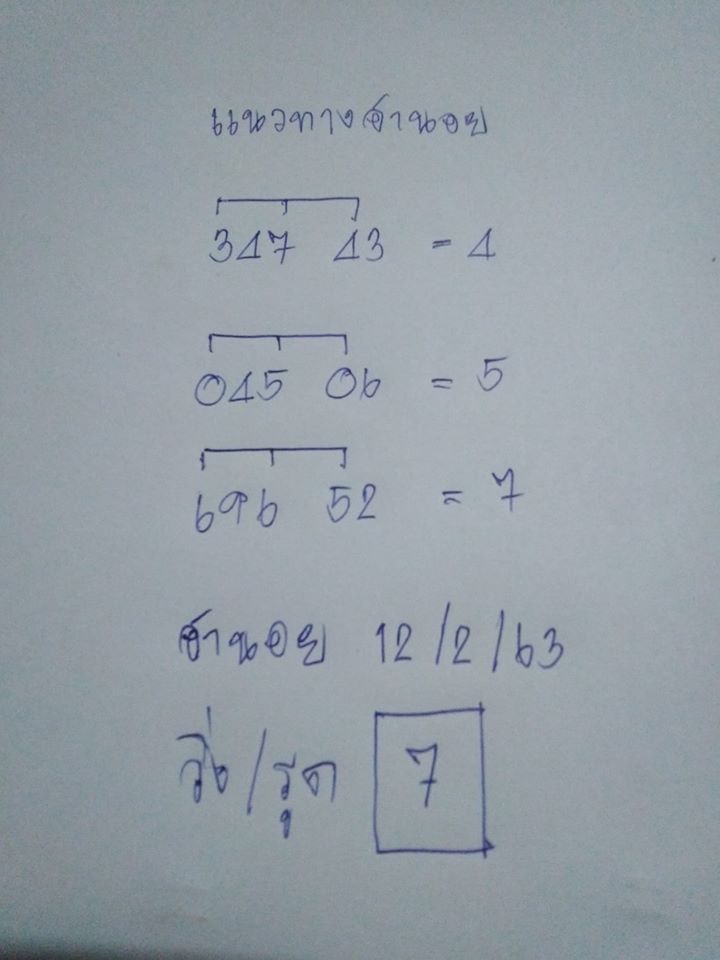 แนวทางฮานอย
347 43 = 4
045 06 = 5
696 52 = 7
ฮานอย 12/2/63
วิ่ง/รูด 7